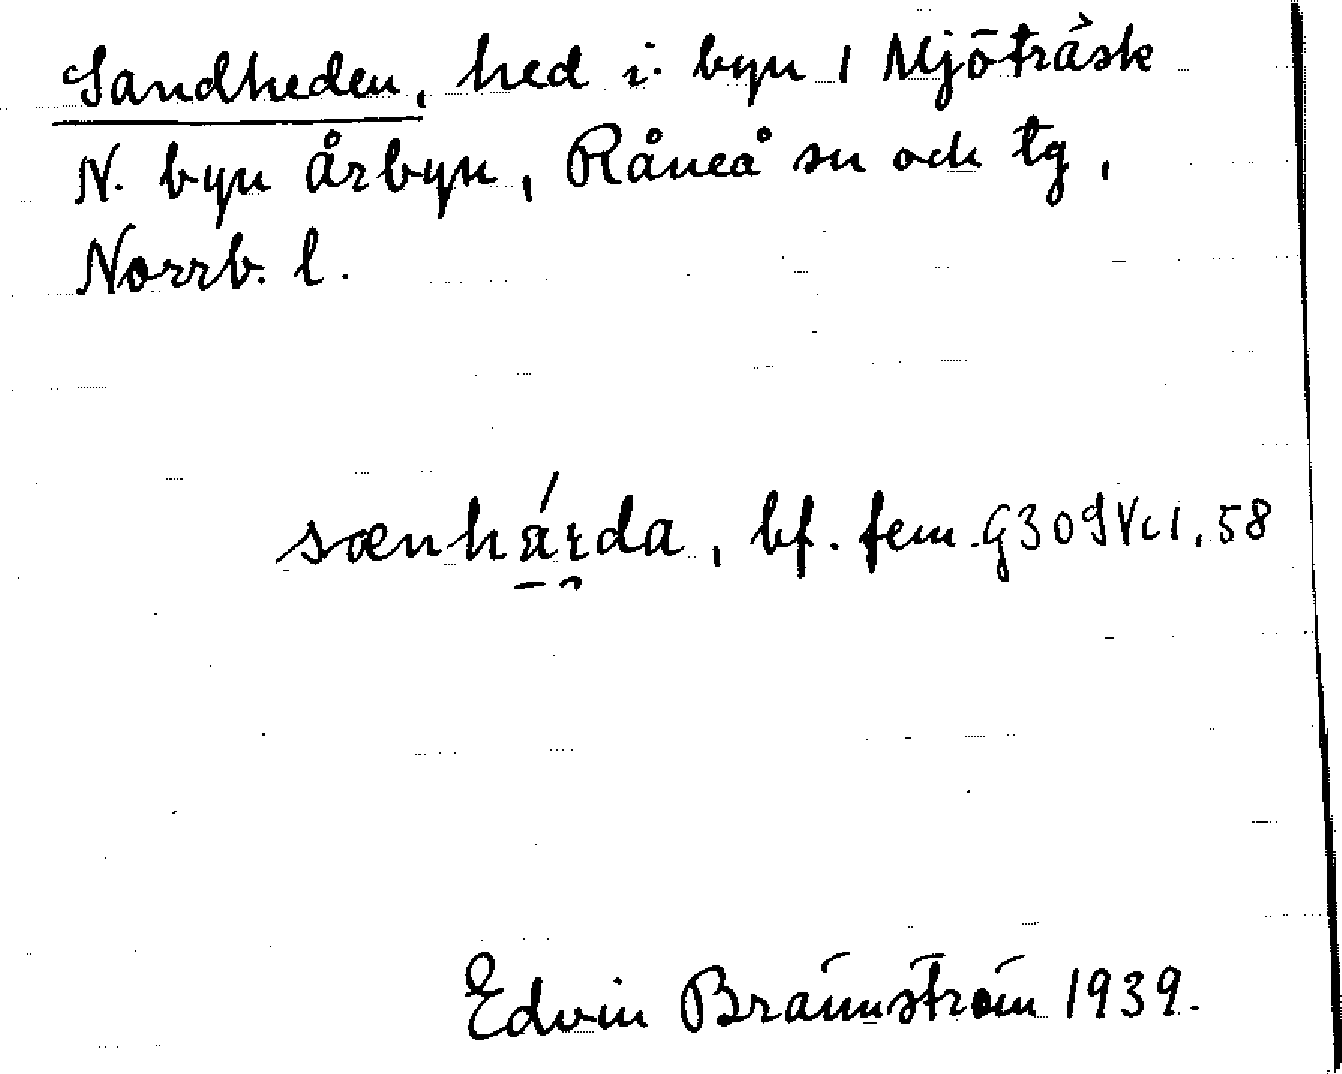 Sandheden, hed i byn 1 Mjöträsk
N. byn Årbyn, Råneå sn och tg,
Norrb. l.
sænhárda, bf. fem. G309 VcI, 58
Edvin Brännström 1939.